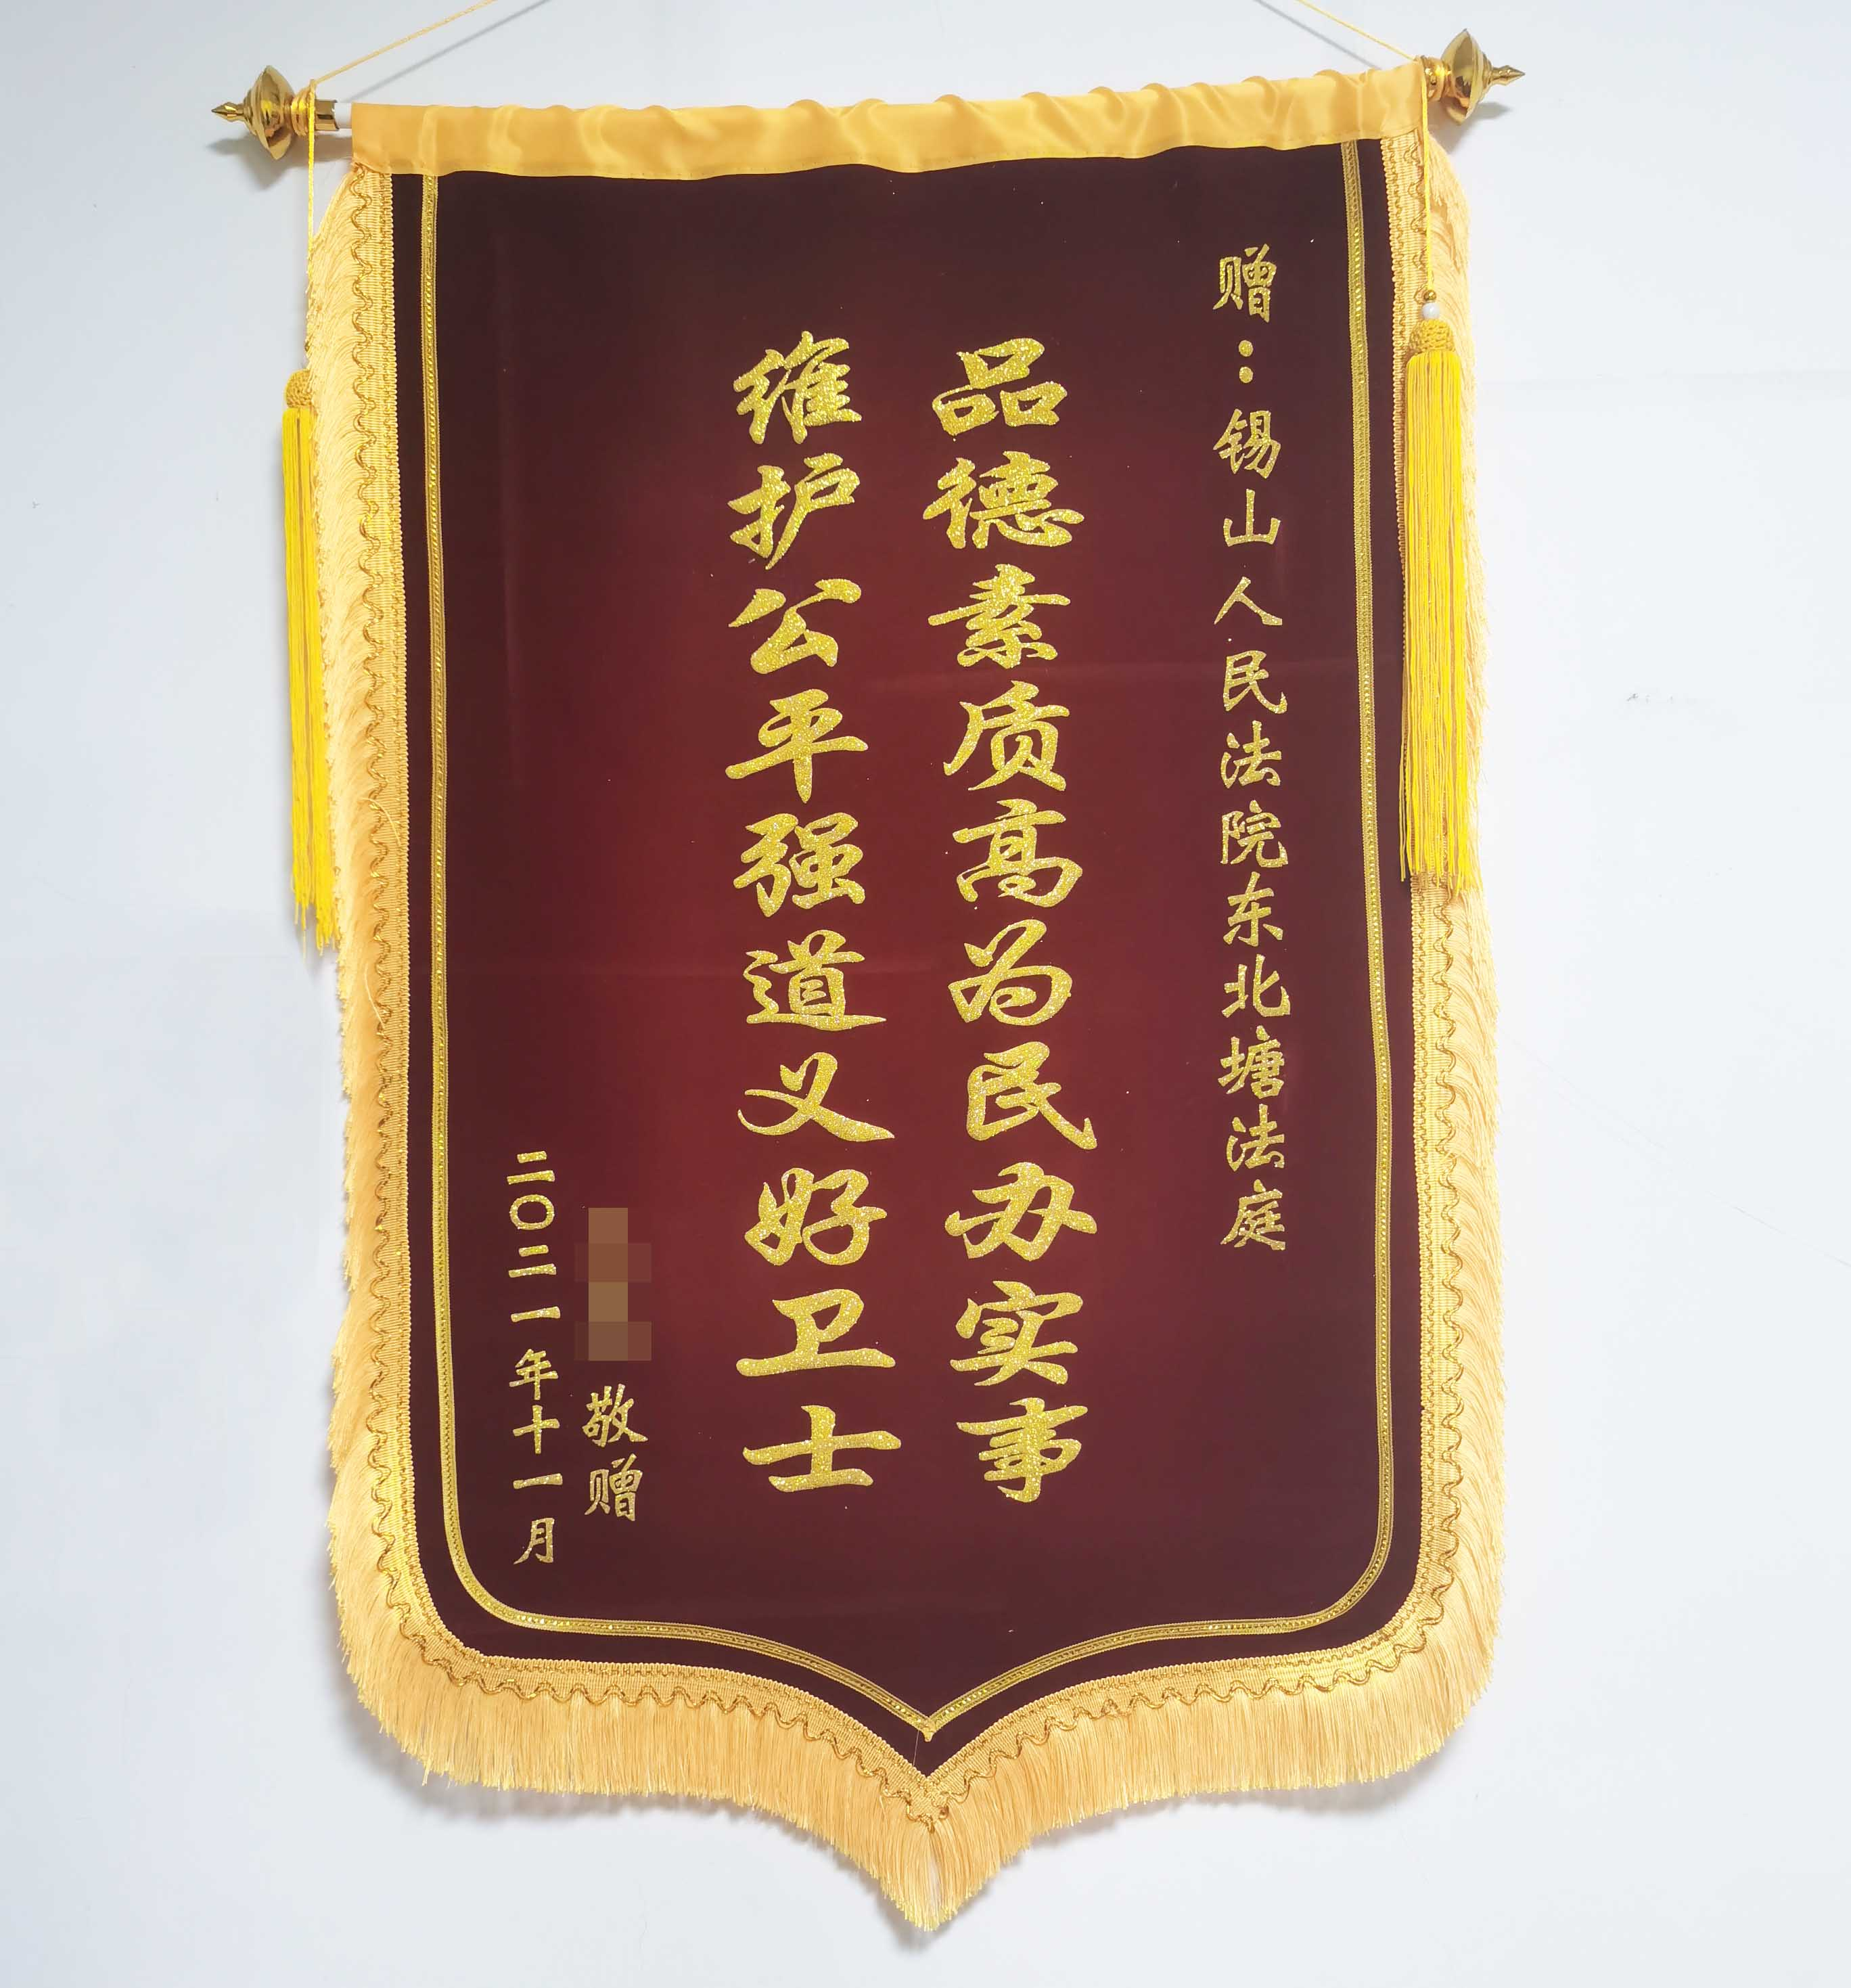 赠：锡山人民法院东北塘法庭
品德素质高为民办实事
维护公平强道义好卫士
敬赠
二〇二一年十一月